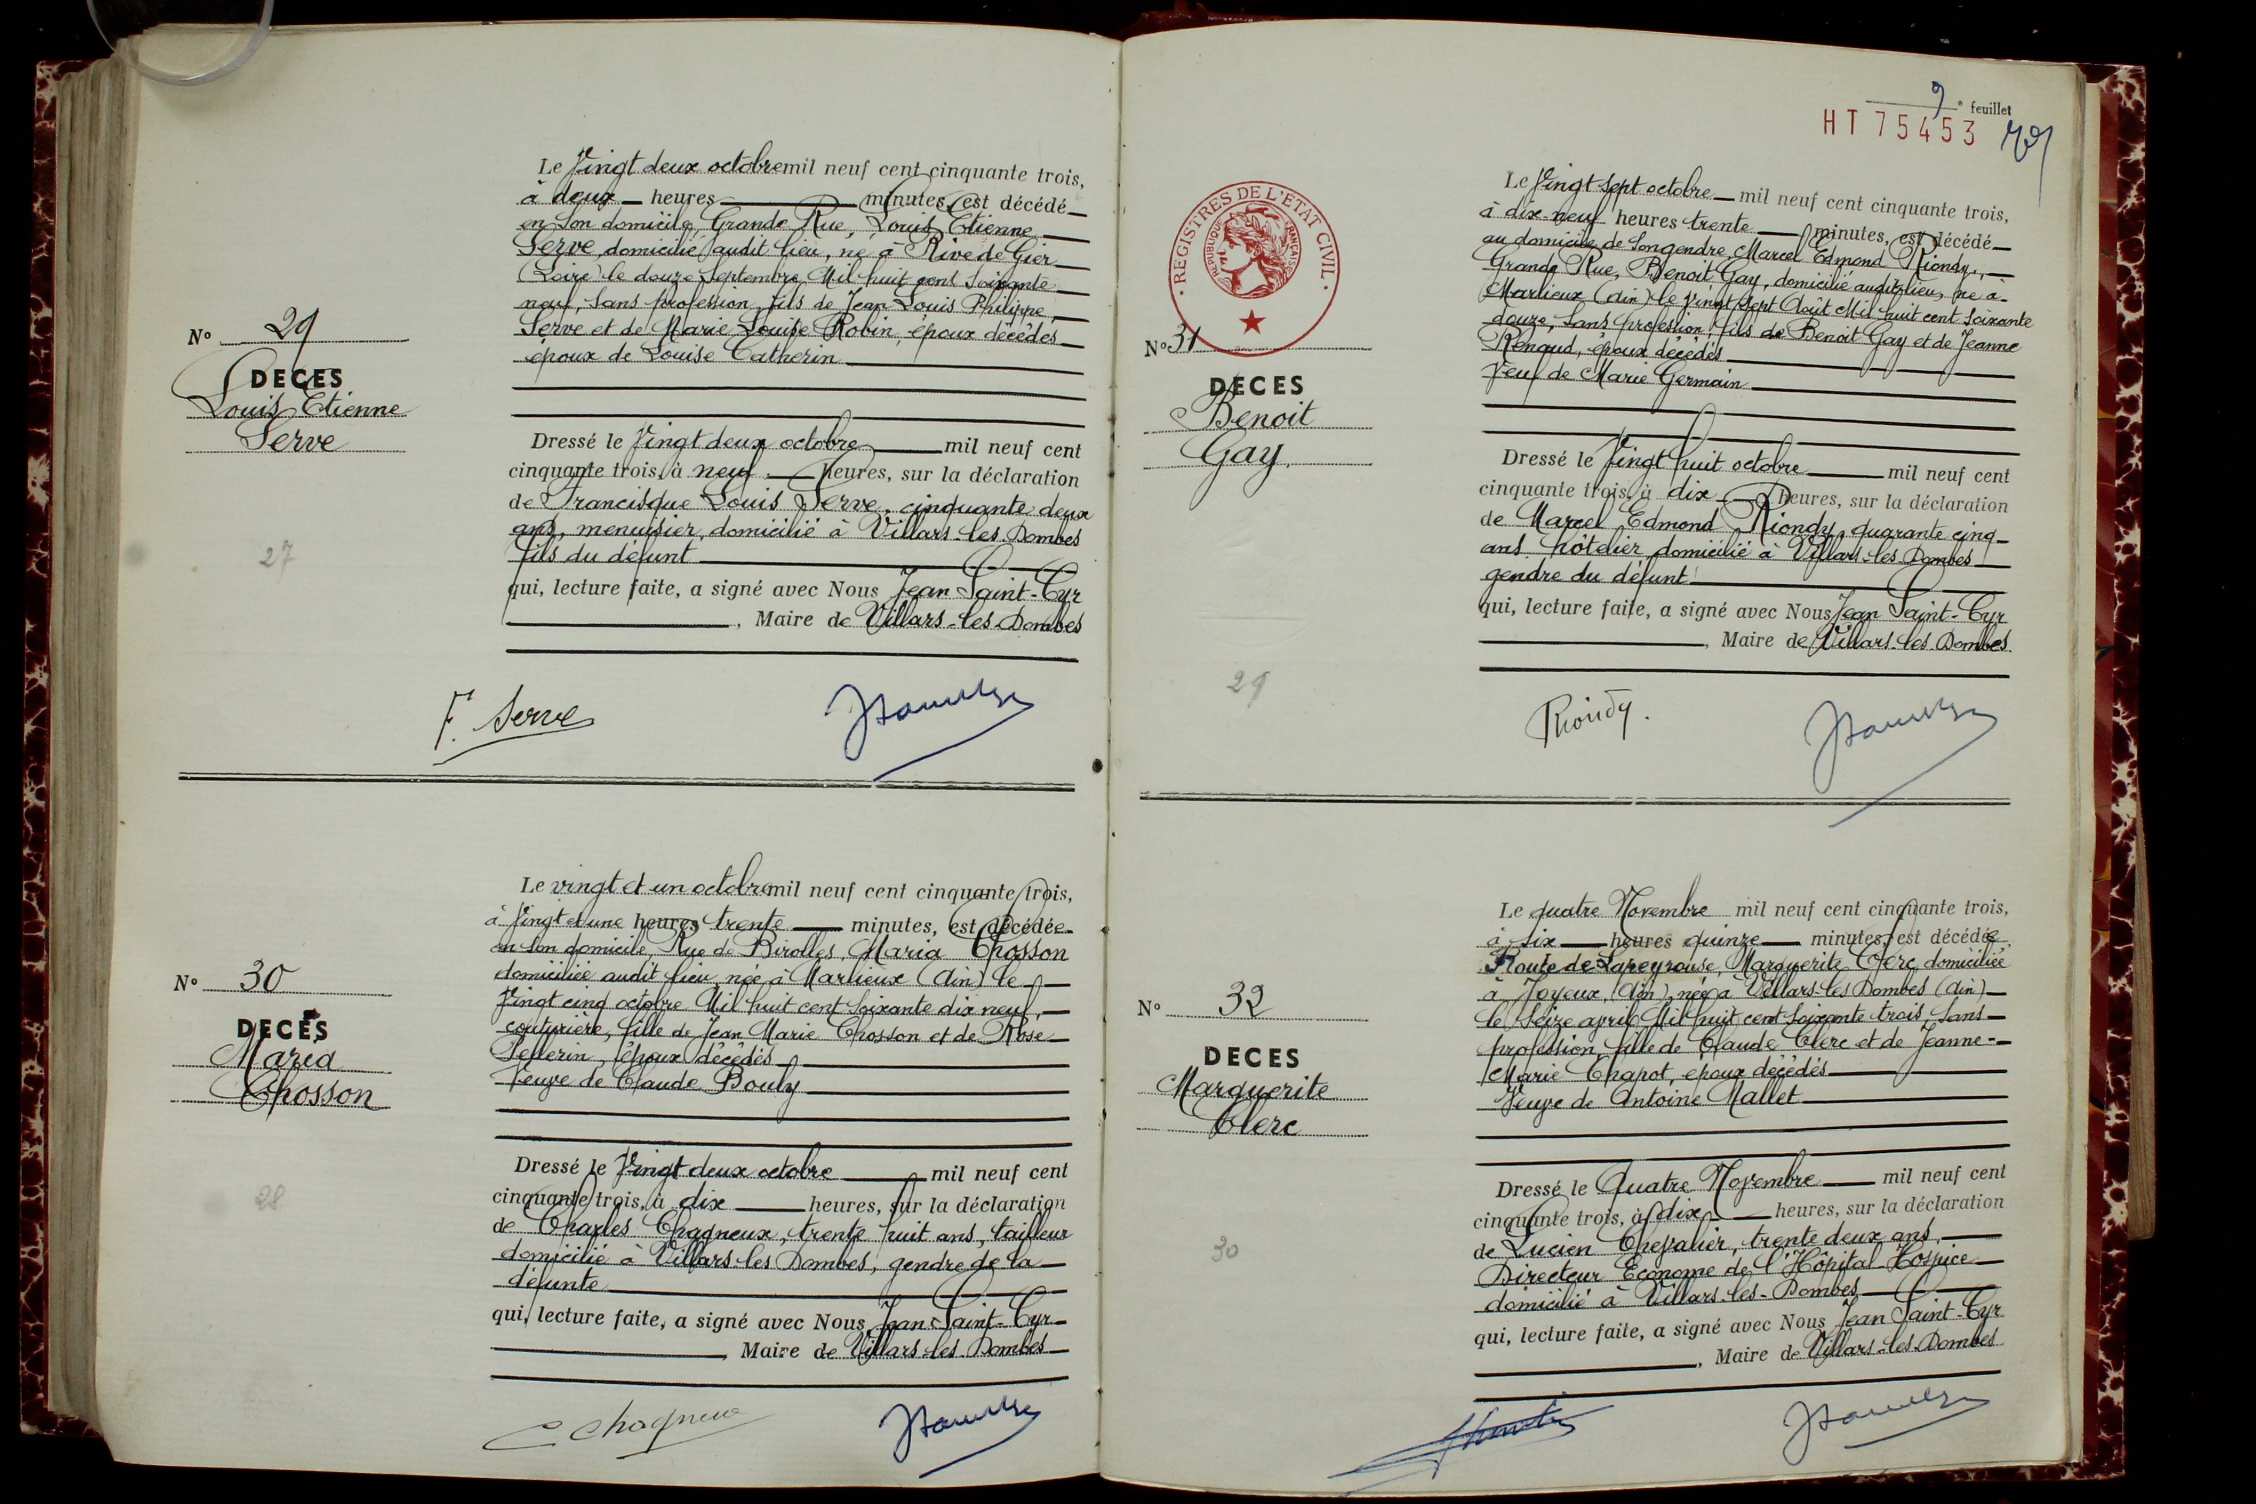 Le Vingt deux octobre mil neuf cent cinquante trois,
à deux heures minutes, est décédé
en son domicile, Grande Rue, Louis Etienne
Serve, domicilié audit lieu, né à Rive de Gier
(Loire) le douze Septembre Mil huit cent soixante
neuf, sans profession, fils de Jean Louis Philippe
Serve et de Marie Louise Robin, époux décédés
époux de Louise Catherin
N° 29
DECES
Louis Etienne
Serve
Dressé le Vingt deux octobre mil neuf cent
cinquante trois, à neuf heures, sur la déclaration
de Francisque Louis Serve, cinquante deux
ans, menuisier, domicilié à Villars-les-Dombes
fils du défunt
27
qui, lecture faite, a signé avec Nous Jean Saint-Cyr
, Maire de Villars-les-Dombes
F. Serve
Le vingt et un octobre mil neuf cent cinquante trois,
à Vingt et une heures trente minutes, est décédée
en son domicile, Rue de Birolles, Maria Chosson
domiciliée audit lieu, née à Marlieux (Ain) le
Vingt cinq octobre Mil huit cent soixante dix neuf,
couturière, fille de Jean Marie Chosson et de Rose
Pellerin, époux décédés
Veuve de Claude Bouly
N° 30
DECES
Maria
Chosson
Dressé le Vingt deux octobre mil neuf cent
cinquante trois, à dix heures, sur la déclaration
de Charles Chagneux, trente huit ans, tailleur
domicilié à Villars-les-Dombes, gendre de la
défunte
28
qui, lecture faite, a signé avec Nous Jean Saint-Cyr
, Maire de Villars-les-Dombes
C Chagneux
9 e feuillet
HT 75453
REGISTRES DE L'ETAT CIVIL
REPUBLIQUE FRANÇAISE
Le Vingt sept octobre mil neuf cent cinquante trois,
à dix neuf heures trente minutes, est décédé
au domicile de son gendre, Marcel Edmond Riondy,
Grande Rue, Benoit Gay, domicilié audit lieu, né à
Marlieux (Ain) le vingt sept Août Mil huit cent soixante
douze, sans profession, fils de Benoit Gay et de Jeanne
Renaud, époux décédés
Veuf de Marie Germain
N° 31
DECES
Benoit
Gay
Dressé le Vingt huit octobre mil neuf cent
cinquante trois, à dix heures, sur la déclaration
de Marcel Edmond Riondy, quarante cinq
ans, hôtelier, domicilié à Villars-les-Dombes
gendre du défunt
qui, lecture faite, a signé avec Nous Jean Saint-Cyr
, Maire de Villars-les-Dombes
29
Riondy.
Le quatre Novembre mil neuf cent cinquante trois,
à six heures quinze minutes, est décédée
Route de Lapeyrouse, Marguerite Clerc, domiciliée
à Joyeux, (Ain), née à Villars-les-Dombes (Ain)
le Seize avril Mil huit cent soixante trois, sans
profession, fille de Claude Clerc et de Jeanne-
Marie Chapot, époux décédés
Veuve de Antoine Mallet
N° 32
DECES
Marguerite
Clerc
Dressé le Quatre Novembre mil neuf cent
cinquante trois, à dix heures, sur la déclaration
de Lucien Chevalier, trente deux ans,
Directeur Econome de l'Hôpital-Hospice
domicilié à Villars-les-Dombes
30
qui, lecture faite, a signé avec Nous Jean Saint-Cyr
, Maire de Villars-les-Dombes